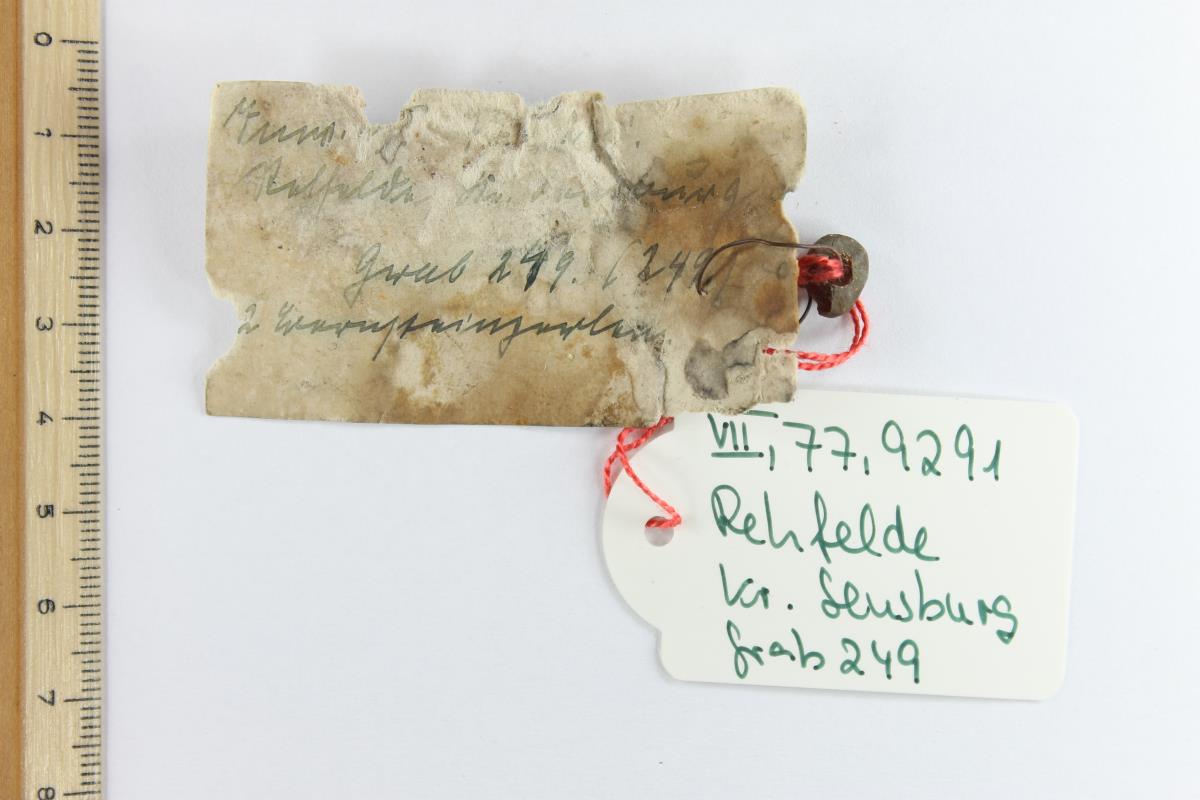 Rehfelde Kr. Sensburg
Grab 249. (249)
2 Bernsteinperlen
VII, 77, 9291
Rehfelde
Kr. Sensburg
Grab 249
0
1
2
3
4
5
6
7
8